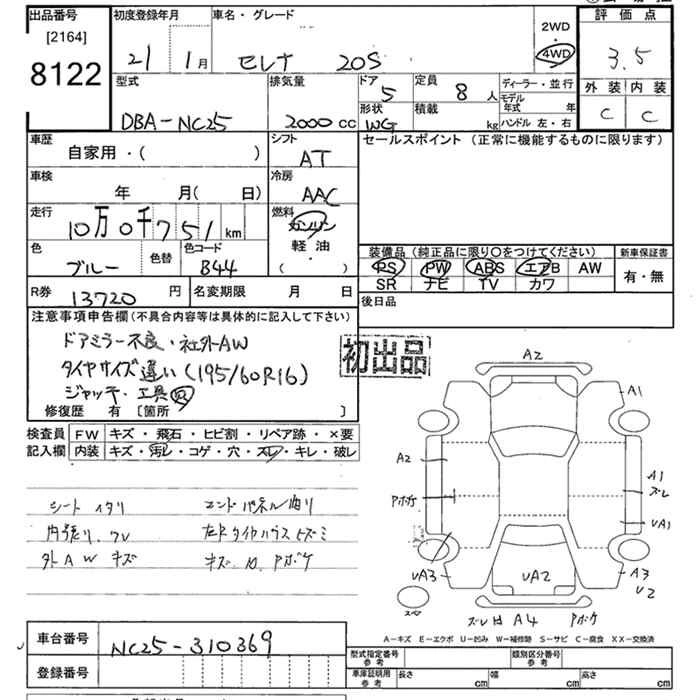 出品番号 初度登録年月 車名・グレード 2WD 評価点
[2164]
8122 21 1月 セレナ 20S 4WD 3.5
型式 排気量 ドア 定員 ディーラー・並行 外装 内装
DBA-NC25 2000cc 5 8人 モデル年式 年 C C
形状 積載 ハンドル 左・右
WG kg
車歴 シフト セールスポイント (正常に機能するものに限ります)
自家用・( ) AT
車検 冷房
年 月( 日) AAC
走行 燃料
10万0千751km ガソリン
軽油
( )
色 色替 色コード 装備品(純正品に限り〇をつけてください) 新車保証書
ブルー B44 PS PW ABS エアB AW 有・無
SR ナビ TV カワ
R券 13720円 名変期限 月 日 後日品
注意事項申告欄(不具合内容等は具体的に記入して下さい)
ドアミラー不良・社外AW
タイヤサイズ違い(195/60R16)
ジャッキ・工具
修復歴 有 [箇所 ]
初出品
検査員 FW キズ・飛石・ヒビ割・リペア跡・×要
記入欄 内装 キズ・汚レ・コゲ・穴・スレ・キレ・破レ
シート イタリ
エンドパネル
キズ
外AW キズ
A2
A1
A2
Pホゲ
A1
スレ
UA1
UA3
UA2
A3
U2
A4
Pホゲ
A-キズ E-エクボ U-凹み W-補修跡 S-サビ C-腐食 XX-交換済
車台番号 NC25-310369
登録番号
型式指定番号 参考 類別区分番号 参考
車庫証明用 参考 長さ cm 幅 cm 高さ cm